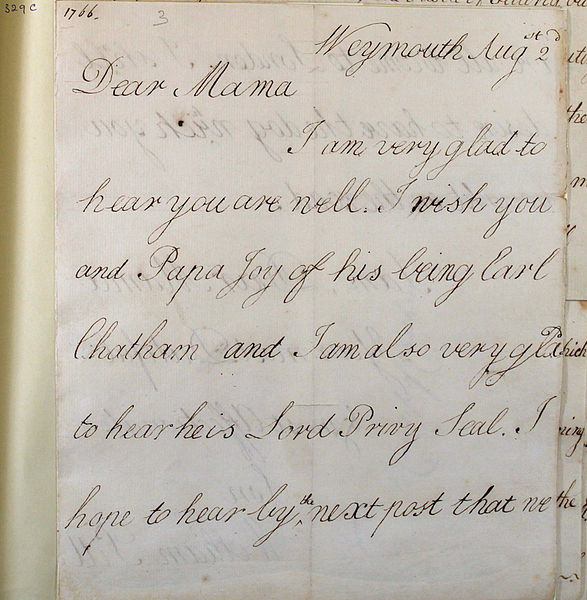 329 C
1766.
3
Weymouth Aug st 2
Dear Mama
I am very glad to
hear you are well. I wish you
and Papa Joy of his being Earl
Chatham and I am also very glad
to hear he is Lord Privy Seal. I
hope to hear by the next post that we